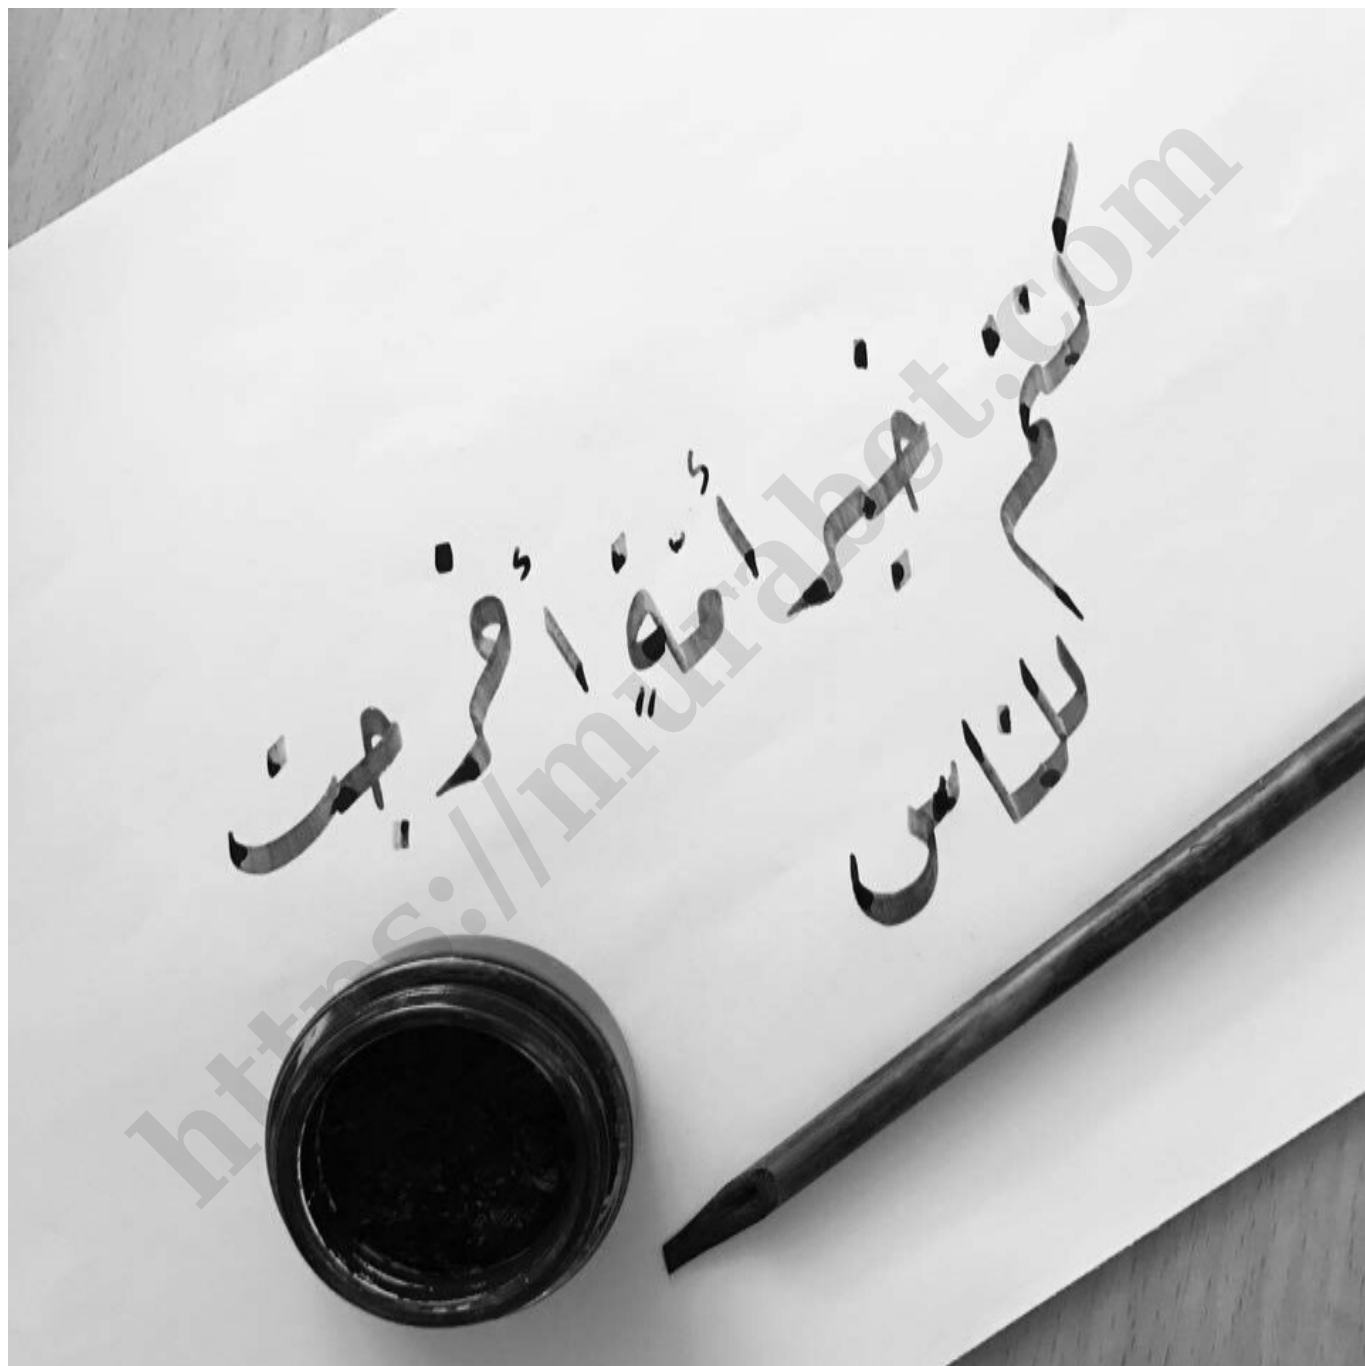 كنتم خير أمةٍ أخرجت
للناس
https://murabet.com